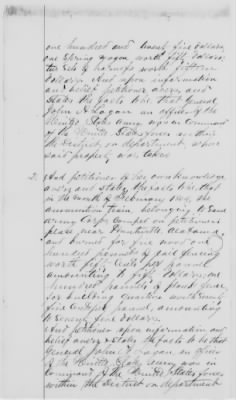 one hundred and twenty five dollars,
one Spring wagon worth fifty dollars,
two sets of harness worth fifteen
dollars. And upon information
and belief petitioner avers and
states the facts to be that General
John A Logan an officer of the
United States Army was in command
of the United States forces within
the District, or department, where
said property was taken
2. And petitioner of her own knowledge
avers and states the facts to be, that
in the month of February 1864, the
ammunition team, belonging to
Corps camped on petitioner's
place near Huntsville, Alabama
and burned for fire wood one
hundred pannels of rail fencing
worth fifty cents per pannel
amounting to fifty dollars; one
hundred pannels of plank fence
for building quarters worth seventy
five cents per pannel, amounting
to seventy five dollars.
And petitioner upon information and
belief avers & states the facts to be that
General John A Logan an officer
of the United States Army was in
command of the United States forces
within the District or department